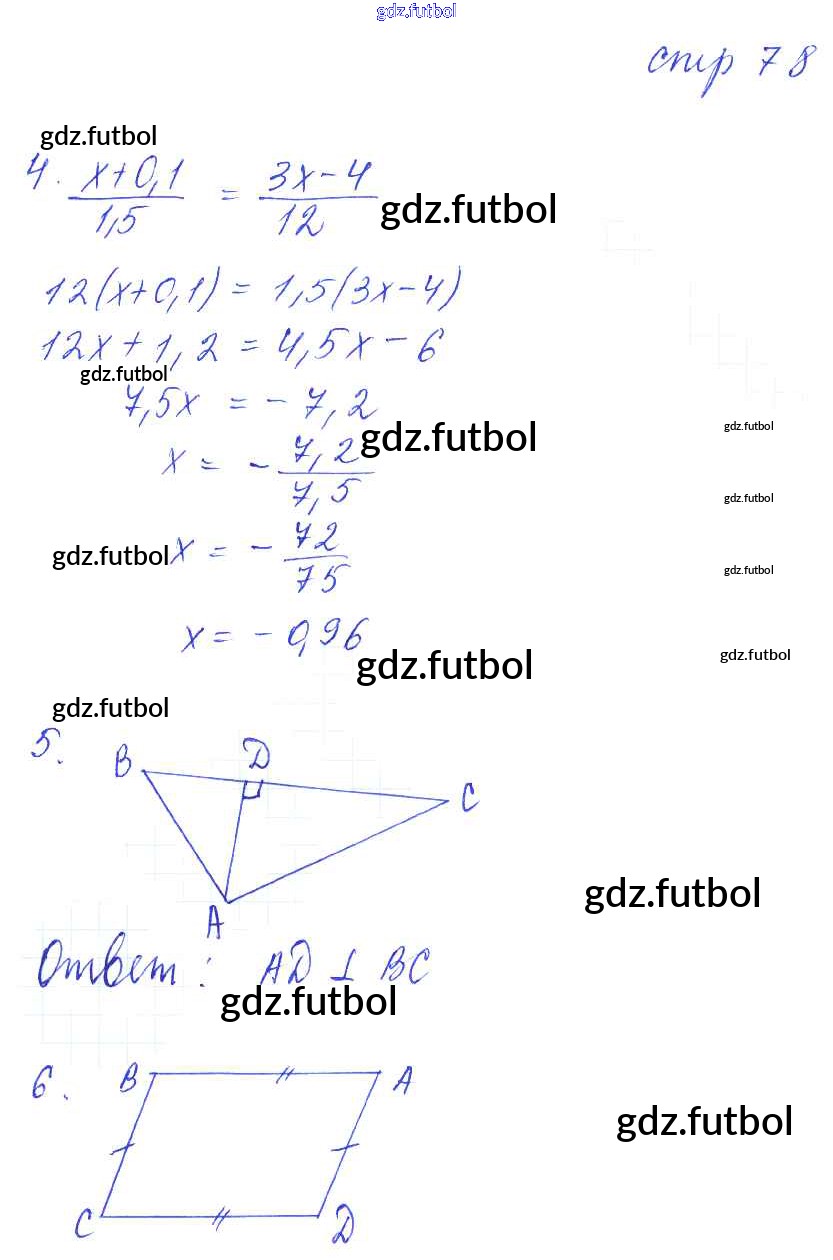 gdz.futbol
стр 78
gdz.futbol
4. (x+0,1)/1,5 = (3x-4)/12
gdz.futbol
12(x+0,1) = 1,5(3x-4)
12x+1,2 = 4,5x-6
gdz.futbol
7,5x = -7,2
gdz.futbol
gdz.futbol
x = - 7,2/7,5
gdz.futbol
gdz.futbol
x = - 72/75
gdz.futbol
x = -0,96
gdz.futbol
gdz.futbol
gdz.futbol
5.
B D C
A
gdz.futbol
Ответ: AD ⊥ BC
gdz.futbol
6. B A
gdz.futbol
C D